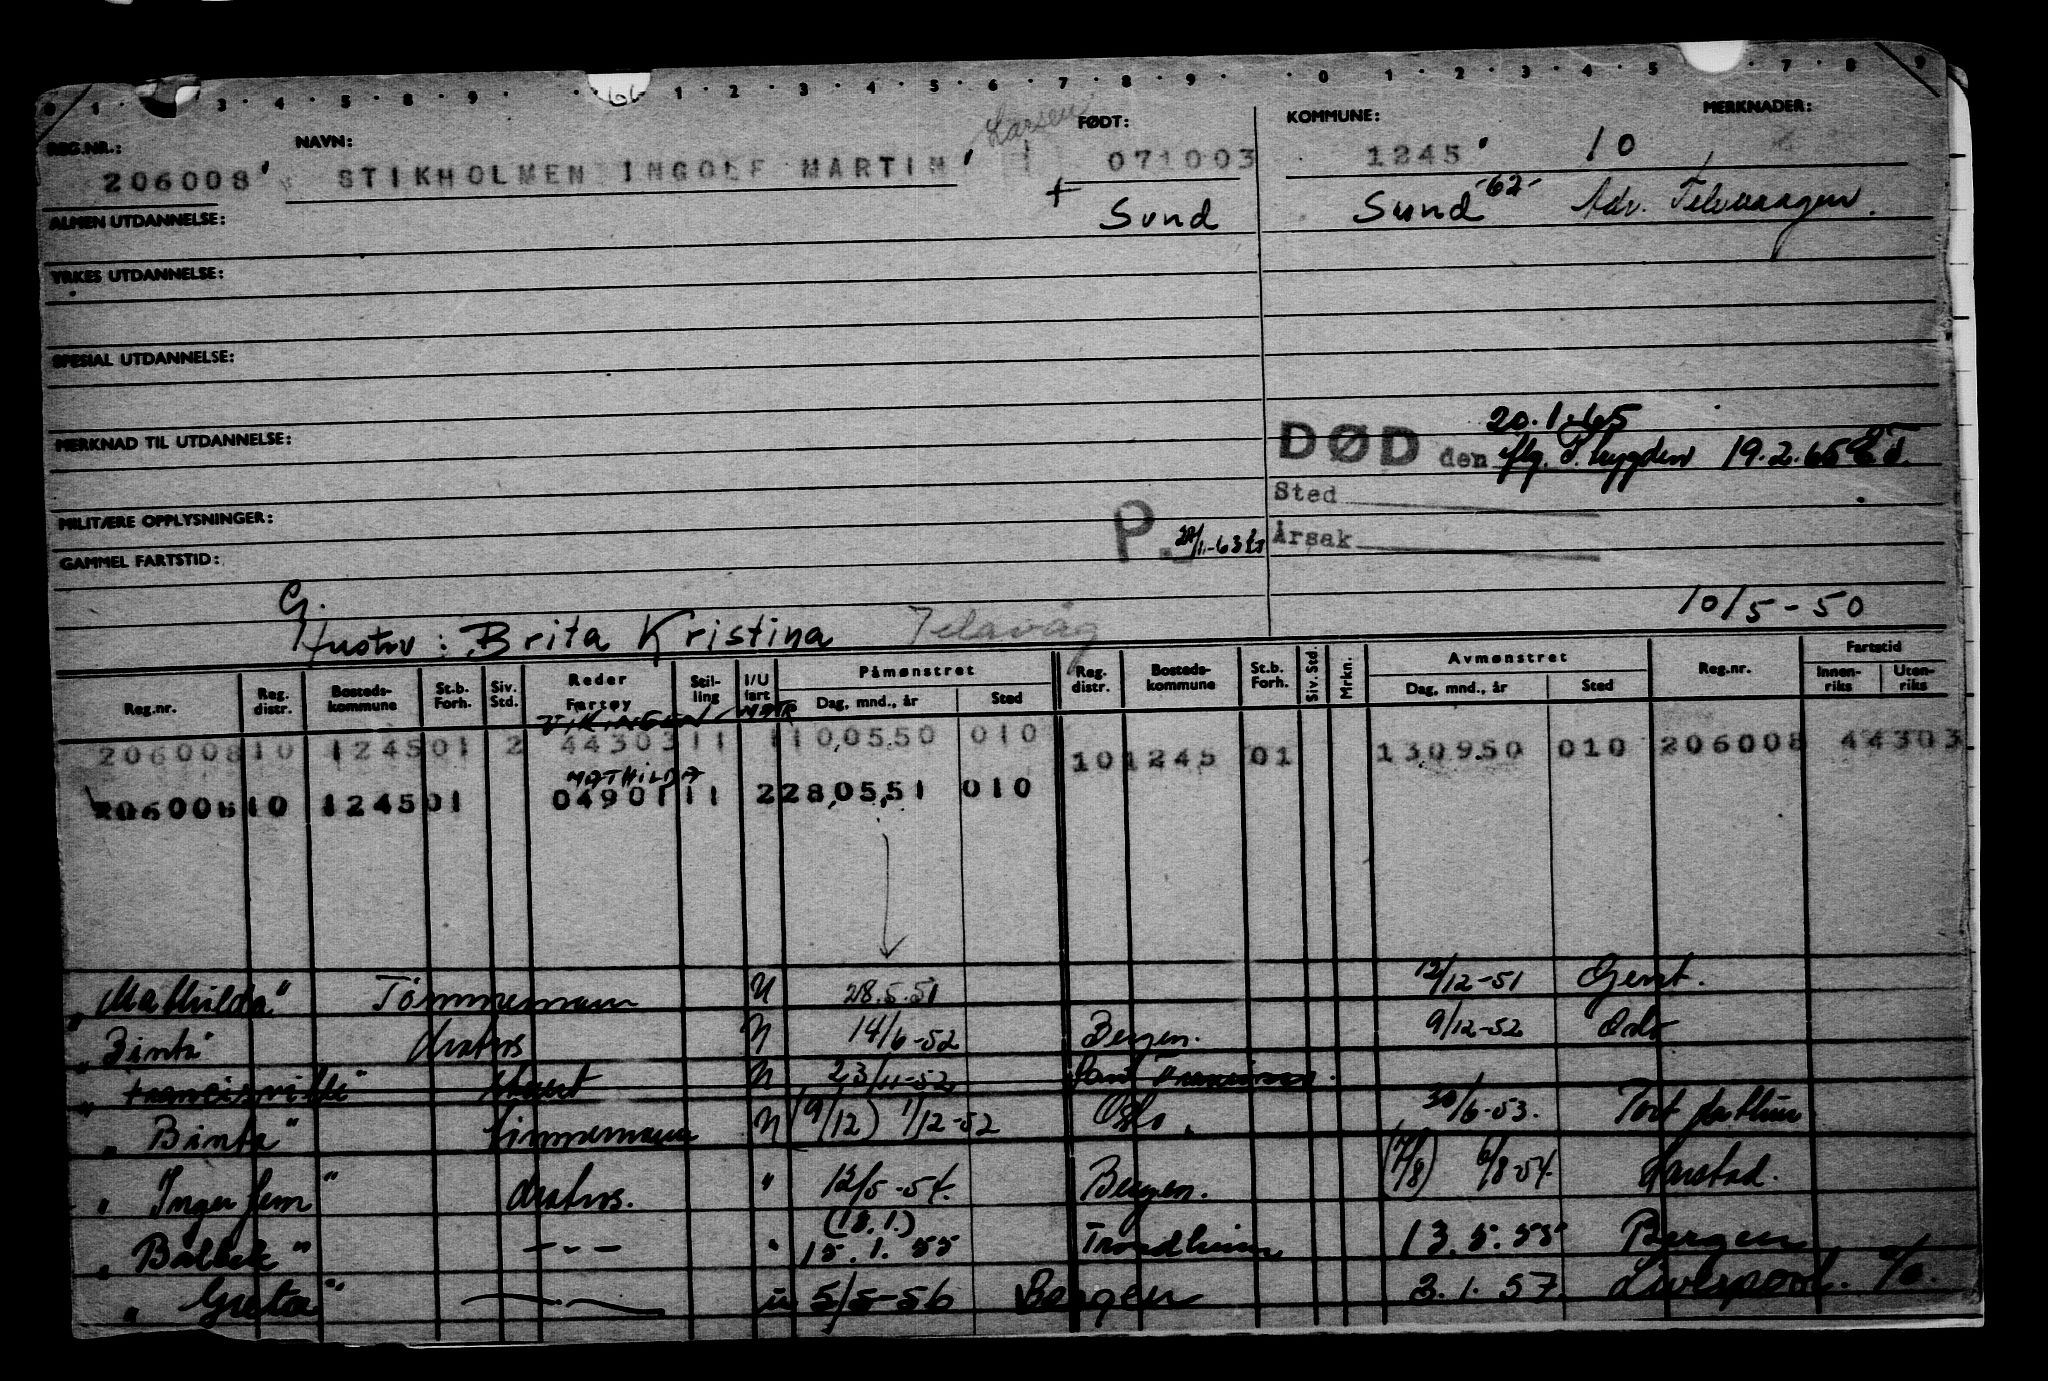 0 1 . 3 . 4 . 5 . 8 . 9 . 1 . 2 . 3 . 4 . 5 . 6 . 7 . 8 . 9 . 0 . 1 . 2 . 3 . 4 . 5 . 7 . 8 . 9
REG.NR.: NAVN: Larsen FØDT: KOMMUNE: MERKNADER:
206008 STIKHOLMEN INGOLF MARTIN 071003 1245 10
ALMEN UTDANNELSE: + Sund Sund -62- Adr. Telavaagen.
YRKES UTDANNELSE:
SPESIAL UTDANNELSE:
20.1.65
MERKNAD TIL UTDANNELSE: DØD den iflg. 19.2.65
Sted
MILITÆRE OPPLYSNINGER: P. -63 Årsak
GAMMEL FARTSTID:
G. 10/5-50
Hustru: Brita Kristina Telavåg
Reg.nr. Reg. distr. Bosteds-kommune St.b. Forh. Siv. Std. Reder Fartøy Stil-ling I/U fart Påmønstret Dag, mnd., år Sted Reg. distr. Bosteds-kommune St.b. Forh. Siv. Std. Mrkn. Avmønstret Dag, mnd., år Sted Reg.nr. Fartstid Innen-riks Uten-riks
VIKINGEN
206008 10 1245 01 2 44303 11 1 10,05.50 010 10 1245 01 130950 010 206008 44303
MATHILDA
206008 10 1245 01 04901 11 2 28,05,51 010
"Mathilda" Tömmermann U 28.5.51 12/12-51 Gent.
"Binta" Matros U 14/6-52 Bergen. 9/12-52 Oslo
U 23/11-52
"Binta" Timmermann U (9/12) 1/12-52 Oslo. 30/6-53.
"Inger Jem" Matros. " 12/5-54. Bergen. (7/8) 6/8-54. Harstad.
(18.1.)
"Balbek" -"- " 15.1.55 Trondheim 13.5.55 Bergen
"Greta" u 5/5-56 Bergen 3.1.57 Liverpool.